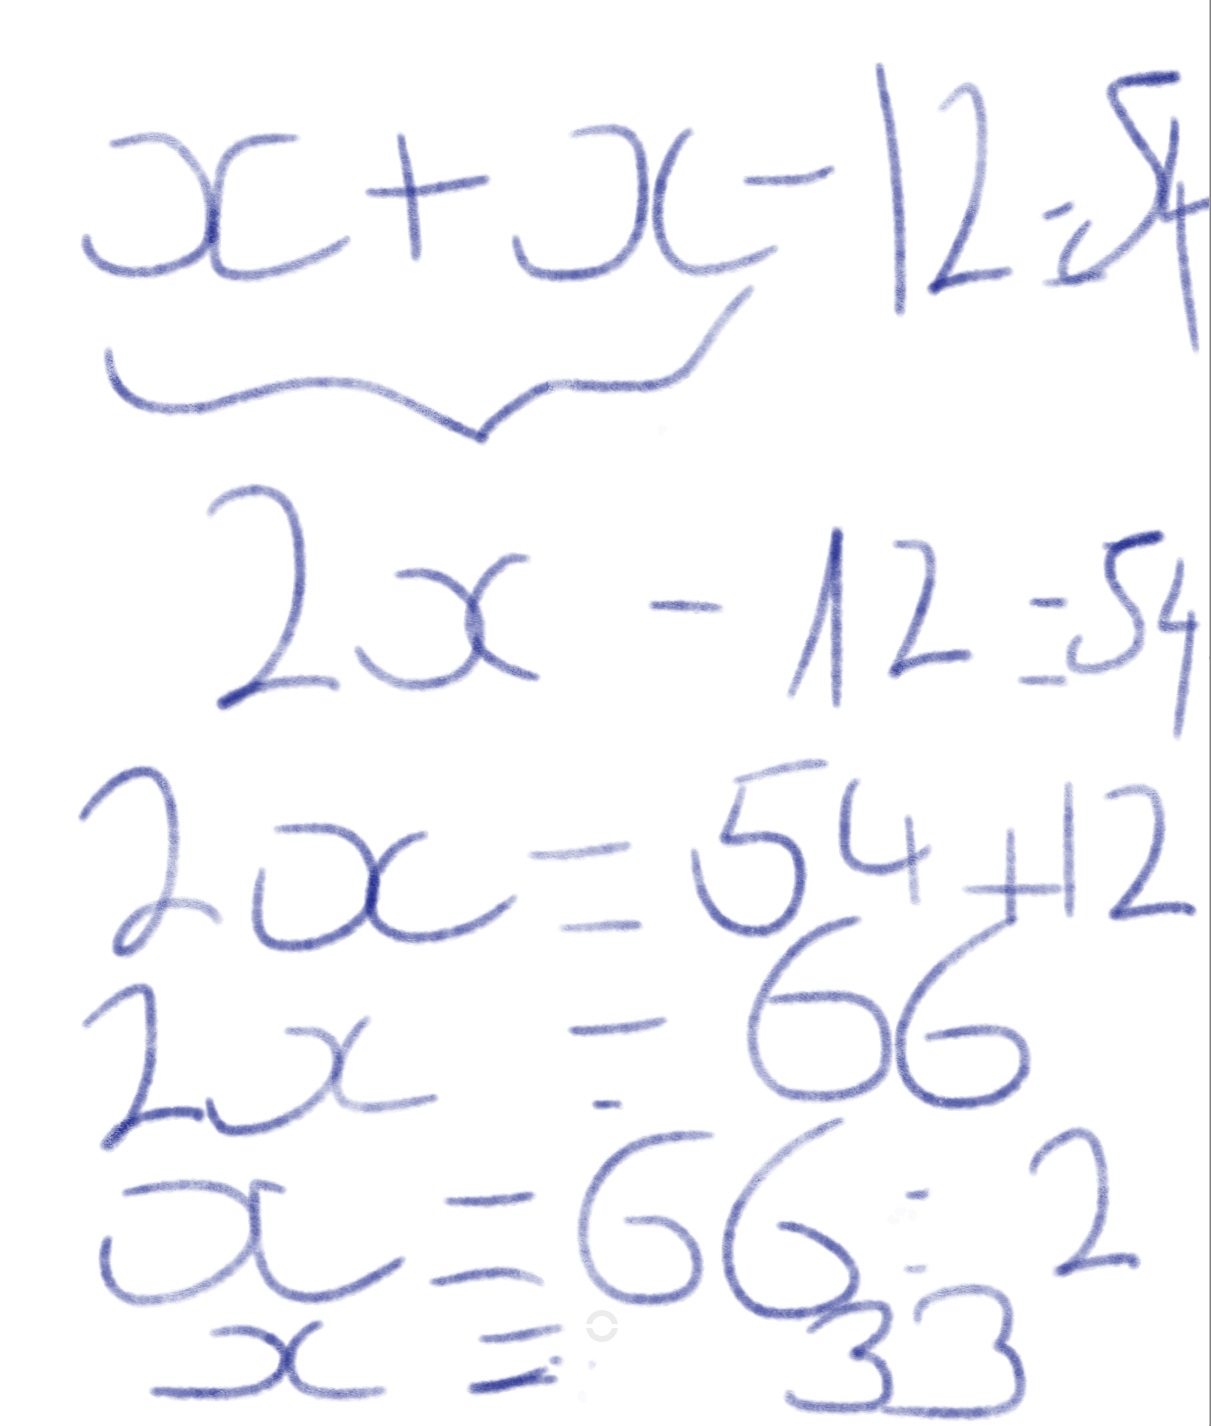 x + x - 12 = 54
2x - 12 = 54
2x = 54 + 12
2x = 66
x = 66 : 2
x = 33